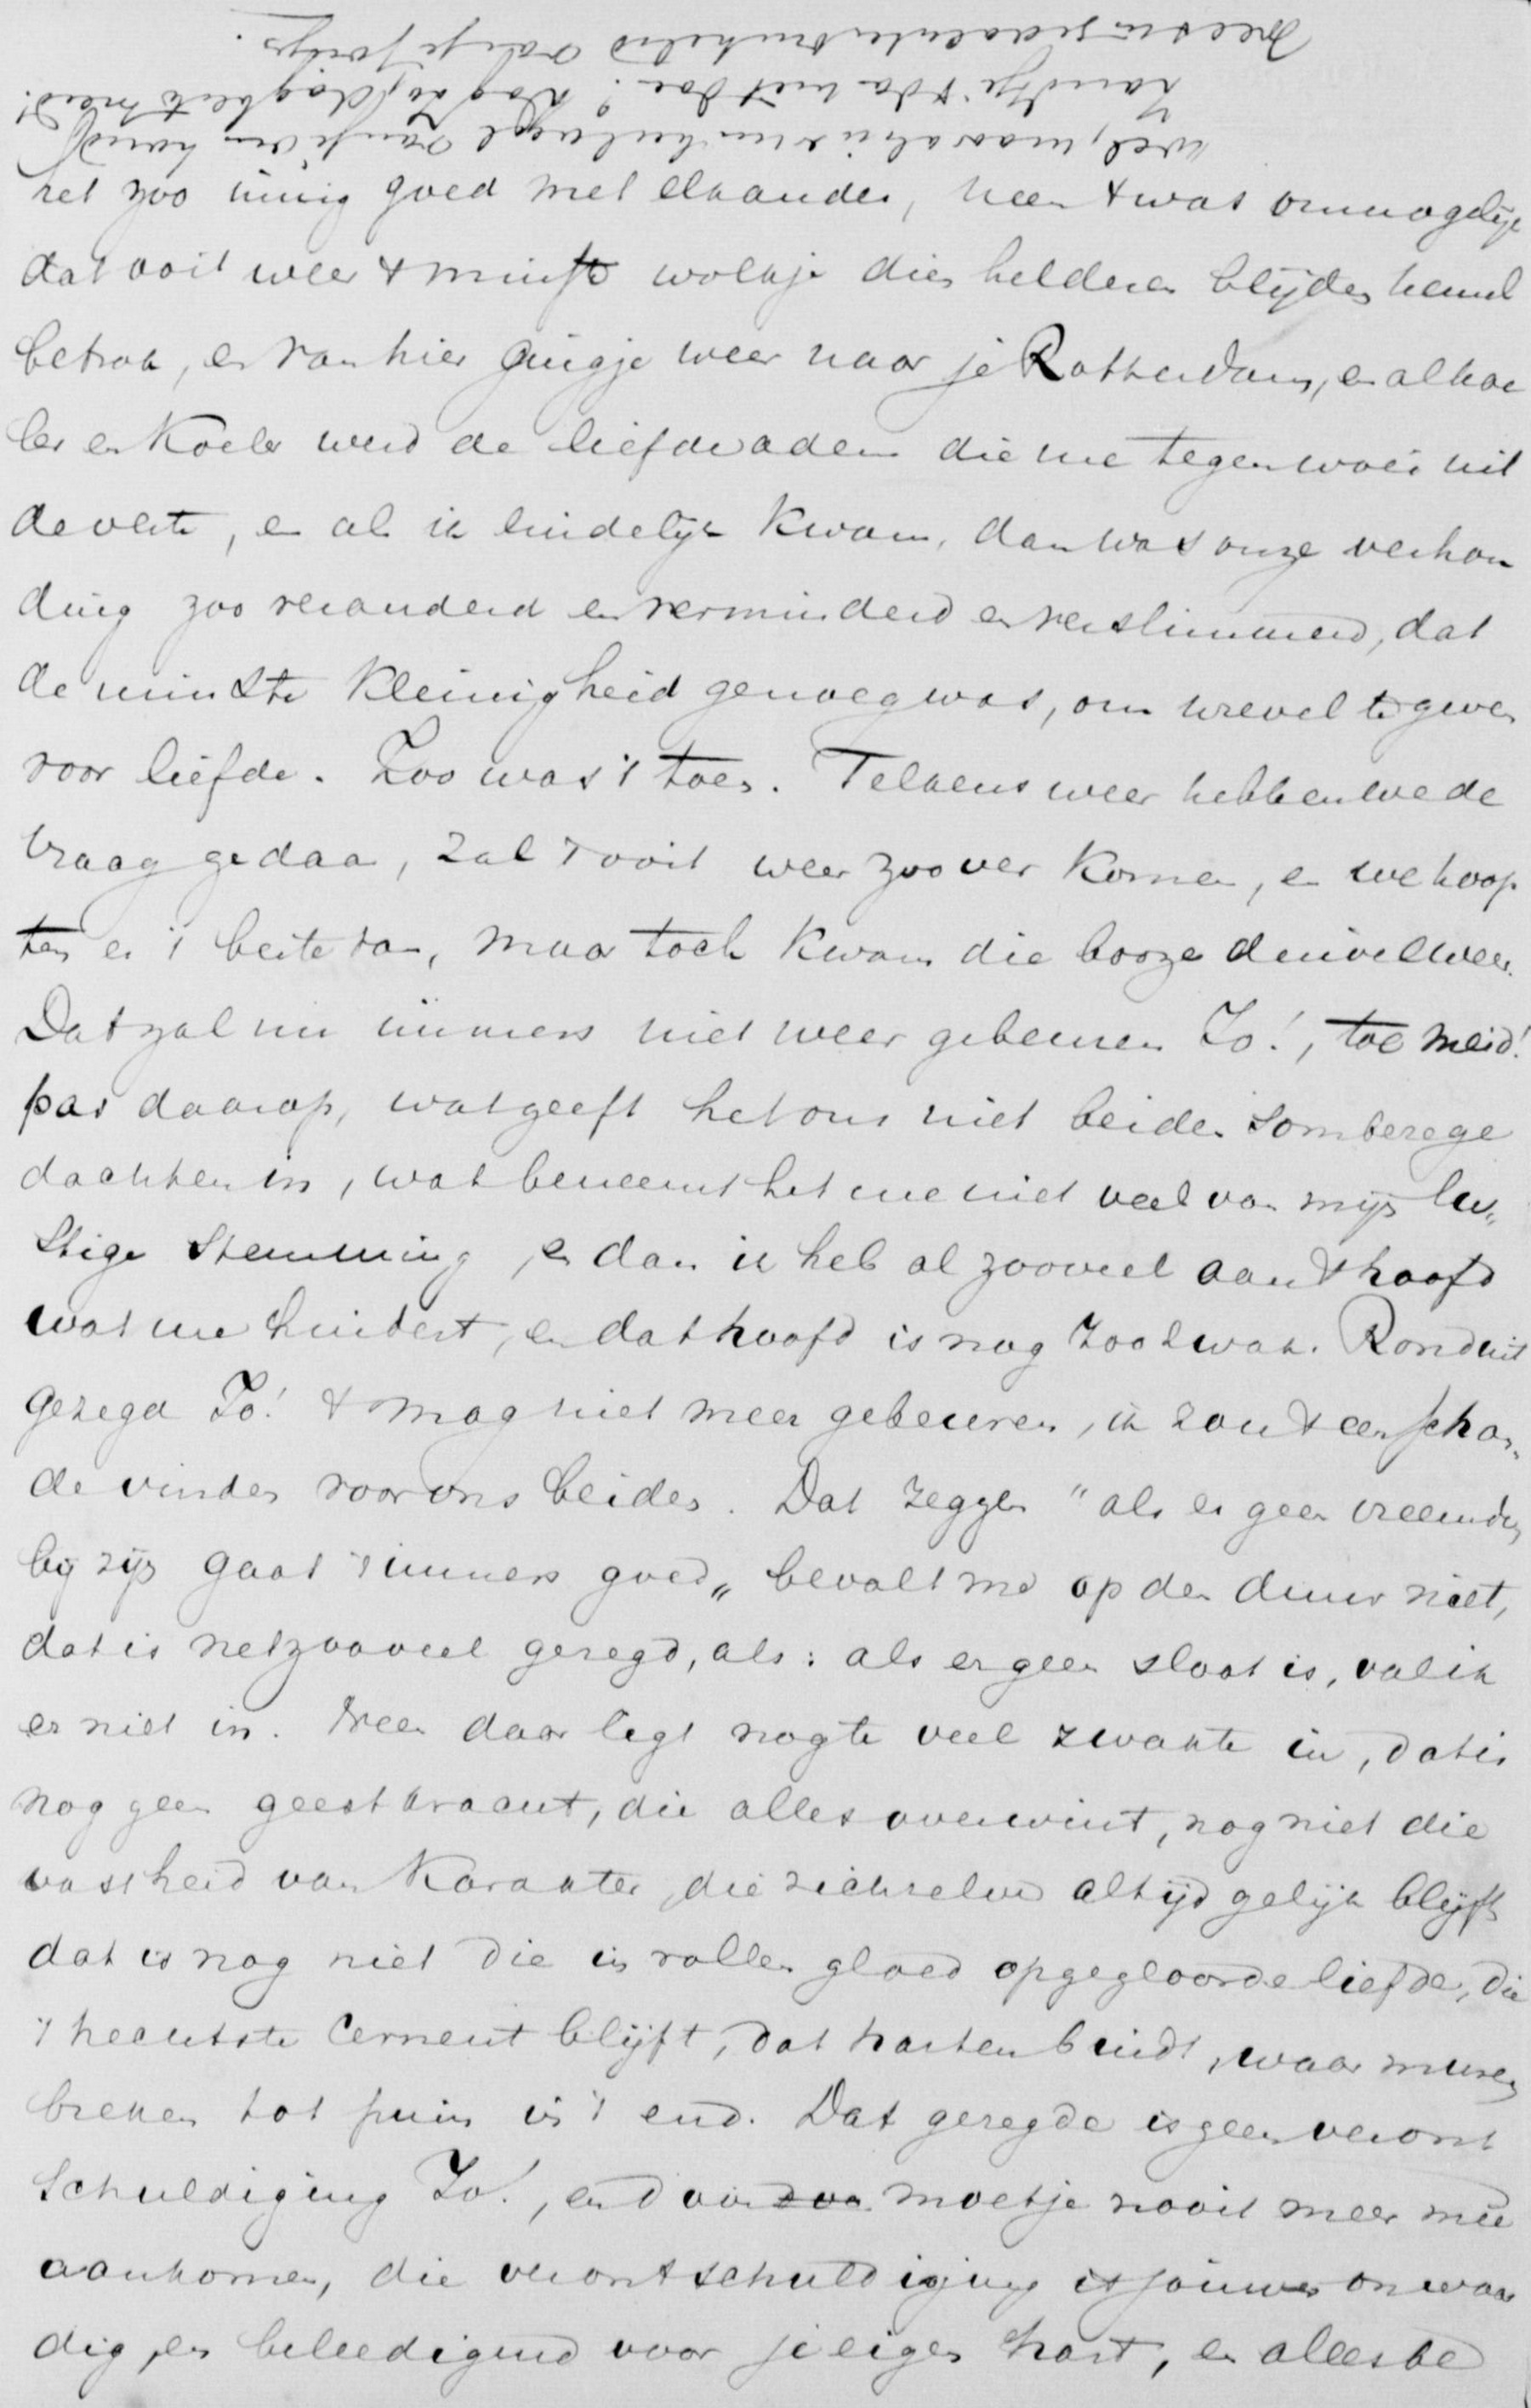 het zoo innig goed met elkander, neen 't was onmogelijk
dat ooit weer 't minste wolkje dien helderen blijden hemel
betrok, en van hier ging je weer naar je Rotterdam, en al koe
ler en koeler werd de liefdeadem die me tegenwoei uit
de verte, en als ik eindelijk kwam, dan was onze verhou
ding zoo veranderd en verminderd en verslimmerd, dat
de minste kleinigheid genoeg was, om wrevel te geven
voor liefde. Zoo was 't toen. Telkens weer hebben we de
vraag gedaan, zal 't ooit weer zoo ver komen, en we hoop
ten er 't beste van, maar toch kwam die booze duivel weer.
Dat zal nu immers niet weer gebeuren Jo!, toe meid!
pas daarop, wat geeft het ons niet beiden sombere ge
dachten in, wat beneemt het me niet veel van mijn lu„
stige stemming, en dan ik heb al zooveel aan 't hoofd
wat me hindert, en dat hoofd is nog zoo zwak. Ronduit
gezegd Jo! 't mag niet meer gebeuren, ik zou 't een schan„
de vinden voor ons beiden. Dat zeggen "als er geen vreemden
bij zijn gaat 't immers goed„ bevalt me op den duur niet,
dat is net zooveel gezegd, als: als er geen sloot is, val ik
er niet in. Neen daar legt nog te veel zwakte in, dat is
nog geen geestkracht, die alles overwint, nog niet die
vastheid van karakter, die zichzelve altijd gelijk blijft
dat is nog niet die in vollen gloed opgegloorde liefde, die
't hechtste cement blijft, dat harten bindt, waar muren
breken tot puin in 't end. Dat gezegde is geen veront
schuldiging Jo!, en daar moet je nooit meer mee
aankomen, die verontschuldiging is jouwer onwaar
dig, en beleedigend voor je eigen hart, en alles be